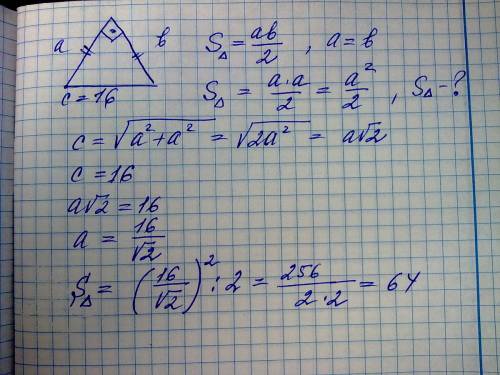 a b
c = 16
S△ = ab/2 , a = b
S△ = a·a/2 = a²/2 , S△ - ?
c = √(a² + a²) = √(2a²) = a√2
c = 16
a√2 = 16
a = 16/√2
S△ = (16/√2)² : 2 = 256/(2·2) = 64